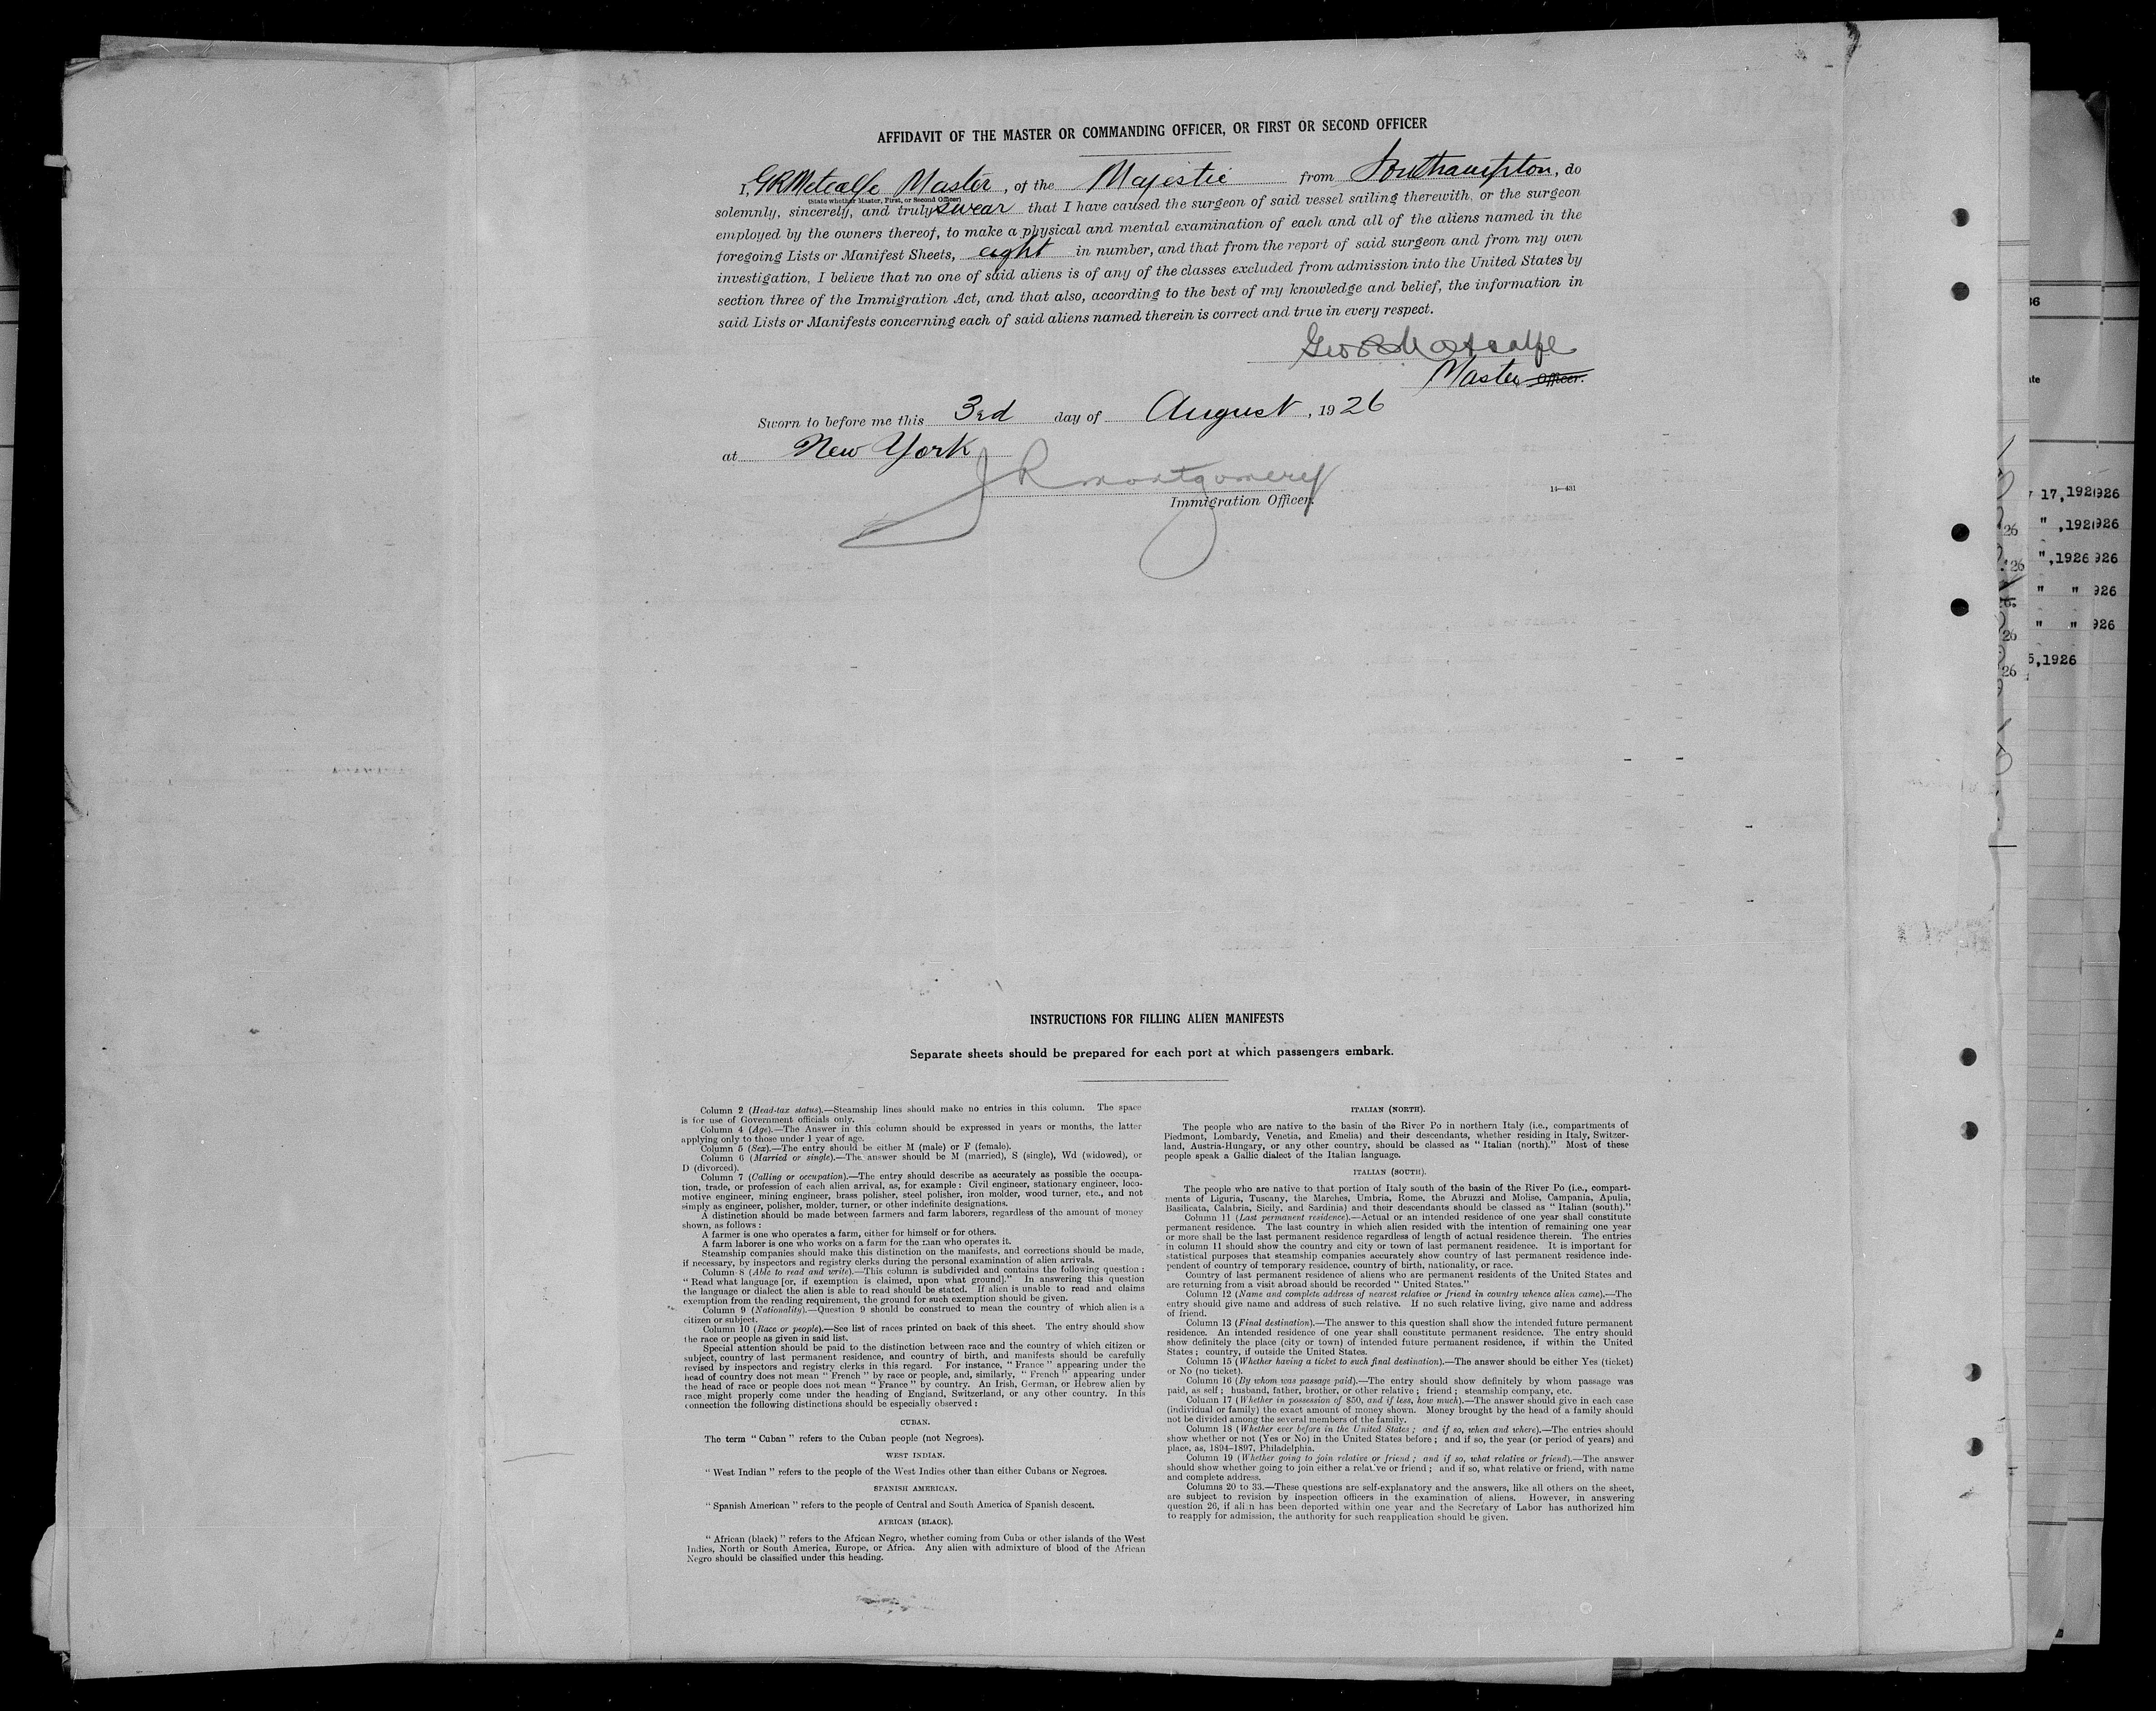 AFFIDAVIT OF THE MASTER OR COMMANDING OFFICER, OR FIRST OR SECOND OFFICER
I, GR Metcalfe Master, of the Majestic from Southampton, do
(State whether Master, First, or Second Officer)
solemnly, sincerely, and truly swear that I have caused the surgeon of said vessel sailing therewith, or the surgeon
employed by the owners thereof, to make a physical and mental examination of each and all of the aliens named in the
foregoing Lists or Manifest Sheets, eight in number, and that from the report of said surgeon and from my own
investigation, I believe that no one of said aliens is of any of the classes excluded from admission into the United States by
section three of the Immigration Act, and that also, according to the best of my knowledge and belief, the information in
said Lists or Manifests concerning each of said aliens named therein is correct and true in every respect.
Geo R Metcalfe
Master Officer.
Sworn to before me this 3rd day of August, 1926
at New York
J R Montgomery
Immigration Officer.
14—431
INSTRUCTIONS FOR FILLING ALIEN MANIFESTS
Separate sheets should be prepared for each port at which passengers embark.
Column 2 (Head-tax status).—Steamship lines should make no entries in this column. The space
is for use of Government officials only.
Column 4 (Age).—The Answer in this column should be expressed in years or months, the latter
applying only to those under 1 year of age.
Column 5 (Sex).—The entry should be either M (male) or F (female).
Column 6 (Married or single).—The answer should be M (married), S (single), Wd (widowed), or
D (divorced).
Column 7 (Calling or occupation).—The entry should describe as accurately as possible the occupa-
tion, trade, or profession of each alien arrival, as, for example: Civil engineer, stationary engineer, loco-
motive engineer, mining engineer, brass polisher, steel polisher, iron molder, wood turner, etc., and not
simply as engineer, polisher, molder, turner, or other indefinite designations.
A distinction should be made between farmers and farm laborers, regardless of the amount of money
shown, as follows:
A farmer is one who operates a farm, either for himself or for others.
A farm laborer is one who works on a farm for the man who operates it.
Steamship companies should make this distinction on the manifests, and corrections should be made,
if necessary, by inspectors and registry clerks during the personal examination of alien arrivals.
Column 8 (Able to read and write).—This column is subdivided and contains the following question:
"Read what language [or, if exemption is claimed, upon what ground]." In answering this question
the language or dialect the alien is able to read should be stated. If alien is unable to read and claims
exemption from the reading requirement, the ground for such exemption should be given.
Column 9 (Nationality).—Question 9 should be construed to mean the country of which alien is a
citizen or subject.
Column 10 (Race or people).—See list of races printed on back of this sheet. The entry should show
the race or people as given in said list.
Special attention should be paid to the distinction between race and the country of which citizen or
subject, country of last permanent residence, and country of birth, and manifests should be carefully
revised by inspectors and registry clerks in this regard. For instance, "France" appearing under the
head of country does not mean "French" by race or people, and, similarly, "French" appearing under
the head of race or people does not mean "France" by country. An Irish, German, or Hebrew alien by
race might properly come under the heading of England, Switzerland, or any other country. In this
connection the following distinctions should be especially observed:
CUBAN.
The term "Cuban" refers to the Cuban people (not Negroes).
WEST INDIAN.
"West Indian" refers to the people of the West Indies other than either Cubans or Negroes.
SPANISH AMERICAN.
"Spanish American" refers to the people of Central and South America of Spanish descent.
AFRICAN (BLACK).
"African (black)" refers to the African Negro, whether coming from Cuba or other islands of the West
Indies, North or South America, Europe, or Africa. Any alien with admixture of blood of the African
Negro should be classified under this heading.
ITALIAN (NORTH).
The people who are native to the basin of the River Po in northern Italy (i.e., compartments of
Piedmont, Lombardy, Venetia, and Emelia) and their descendants, whether residing in Italy, Switzer-
land, Austria-Hungary, or any other country, should be classed as "Italian (north)." Most of these
people speak a Gallic dialect of the Italian language.
ITALIAN (SOUTH).
The people who are native to that portion of Italy south of the basin of the River Po (i.e., compart-
ments of Liguria, Tuscany, the Marches, Umbria, Rome, the Abruzzi and Molise, Campania, Apulia,
Basilicata, Calabria, Sicily, and Sardinia) and their descendants should be classed as "Italian (south)."
Column 11 (Last permanent residence).—Actual or an intended residence of one year shall constitute
permanent residence. The last country in which alien resided with the intention of remaining one year
or more shall be the last permanent residence regardless of length of actual residence therein. The entries
in column 11 should show the country and city or town of last permanent residence. It is important for
statistical purposes that steamship companies accurately show country of last permanent residence inde-
pendent of country of temporary residence, country of birth, nationality, or race.
Country of last permanent residence of aliens who are permanent residents of the United States and
are returning from a visit abroad should be recorded "United States."
Column 12 (Name and complete address of nearest relative or friend in country whence alien came).—The
entry should give name and address of such relative. If no such relative living, give name and address
of friend.
Column 13 (Final destination).—The answer to this question shall show the intended future permanent
residence. An intended residence of one year shall constitute permanent residence. The entry should
show definitely the place (city or town) of intended future permanent residence, if within the United
States; country, if outside the United States.
Column 15 (Whether having a ticket to such final destination).—The answer should be either Yes (ticket)
or No (no ticket).
Column 16 (By whom was passage paid).—The entry should show definitely by whom passage was
paid, as self; husband, father, brother, or other relative; friend; steamship company, etc.
Column 17 (Whether in possession of $50, and if less, how much).—The answer should give in each case
(individual or family) the exact amount of money shown. Money brought by the head of a family should
not be divided among the several members of the family.
Column 18 (Whether ever before in the United States; and if so, when and where).—The entries should
show whether or not (Yes or No) in the United States before; and if so, the year (or period of years) and
place, as, 1894-1897, Philadelphia.
Column 19 (Whether going to join relative or friend; and if so, what relative or friend).—The answer
should show whether going to join either a relative or friend; and if so, what relative or friend, with name
and complete address.
Columns 20 to 33.—These questions are self-explanatory and the answers, like all others on the sheet,
are subject to revision by inspection officers in the examination of aliens. However, in answering
question 26, if alien has been deported within one year and the Secretary of Labor has authorized him
to reapply for admission, the authority for such reapplication should be given.
17, 192 926
26 " ,192 926
26 " ,1926 926
" " 926
26 " " 926
26 5,1926